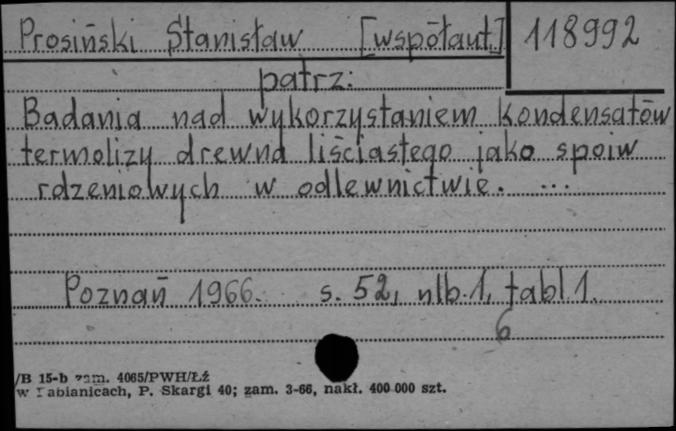 Prosiński Stanisław [współaut.] 118992
patrz:
Badania nad wykorzystaniem kondensatów
termolizy drewna liściastego jako spoiw
rdzeniowych w odlewnictwie. ...
Poznań 1966. s. 52, nlb. 1, tabl. 1.
6
/B 15-b zam. 4065/PWH/Łź
w Pabianicach, P. Skargi 40; zam. 3-66, nakł. 400 000 szt.